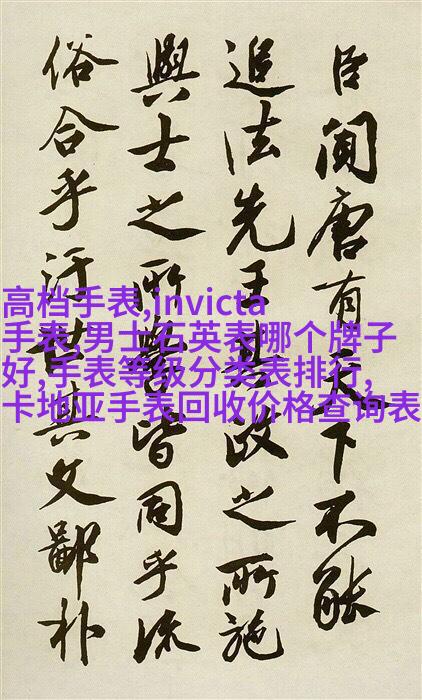 臣聞唐有天下不能
追法先王其政之所施
與士之所皆同乎流
俗合乎汙世其文鄙朴
高档手表,invicta
手表,男士石英表哪个牌子
好,手表等级分类表排行,
卡地亚手表回收价格查询表